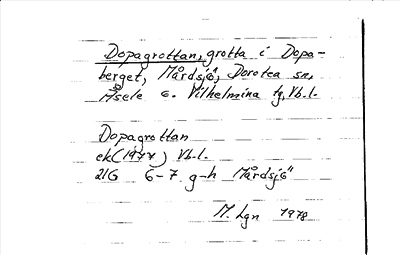 Dopagrottan, grotta i Dopa-
berget, Mårdsjö, Dorotea sn,
Åsele o. Vilhelmina tg, Vb.l.
Dopagrottan
ek (1974) Vb.l.
21G 6-7 g-h Mårdsjö"
M. Lgn 1978